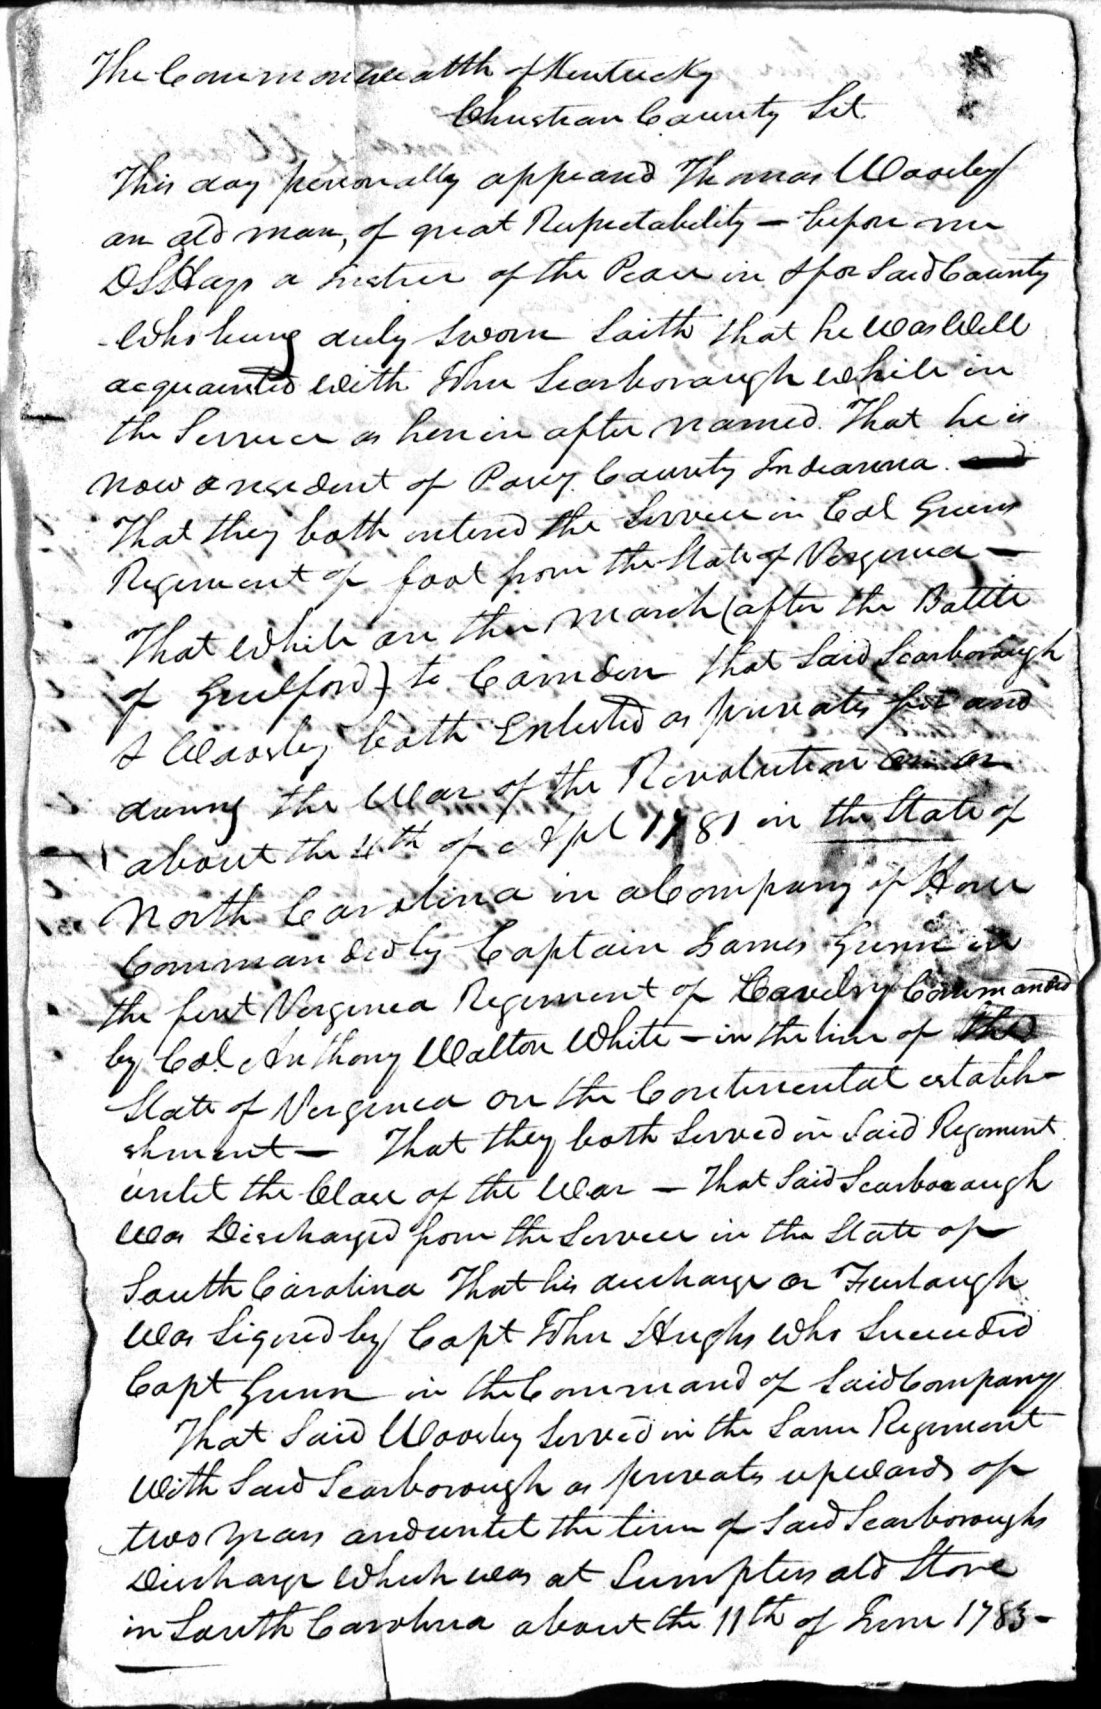 The Commonwealth of Kentucky
Christian County Sct.
This day personally appeared Thomas Woosley
an old man, of great Respectability — before me
a Justice of the Peace in & for Said County
Who being duly sworn Saith that he was Well
acquainted With John Scarborough while in
the Service as herein after named. That he is
now a resident of Posey County Indeanna.
That they both entered the Service in Col Greens
Regiment of foot from the State of Verginea —
That While on their march (after the Battle
of Guilford) to Camden that Said Scarborough
& Woosley both Enlisted as privates for and
during the War of the Revolution on or
about the 4th of Apl 1781 in the State of
North Carolina in a Company of Horse
Commanded by Captain James Gunn in
the first Verginea Regiment of Cavelry Commanded
by Col. Anthony Walton White — in the line of the
State of Verginea on the Continental establi-
shment — That they both Served in Said Regiment
untit the Close of the War — That Said Scarborough
Was Discharged from the Service in the State of
South Carolina That his discharge or Furlaugh
Was Signed by Capt John Hughs Who Succeeded
Capt Gunn in the Command of Said Company
That Said Woosley Served in the Same Regiment
With Said Scarborough as privates upwards of
two years and untel the time of Said Scarboroughs
Discharge Which was at Sumpters old Store
in South Carolina about the 11th of June 1783 -